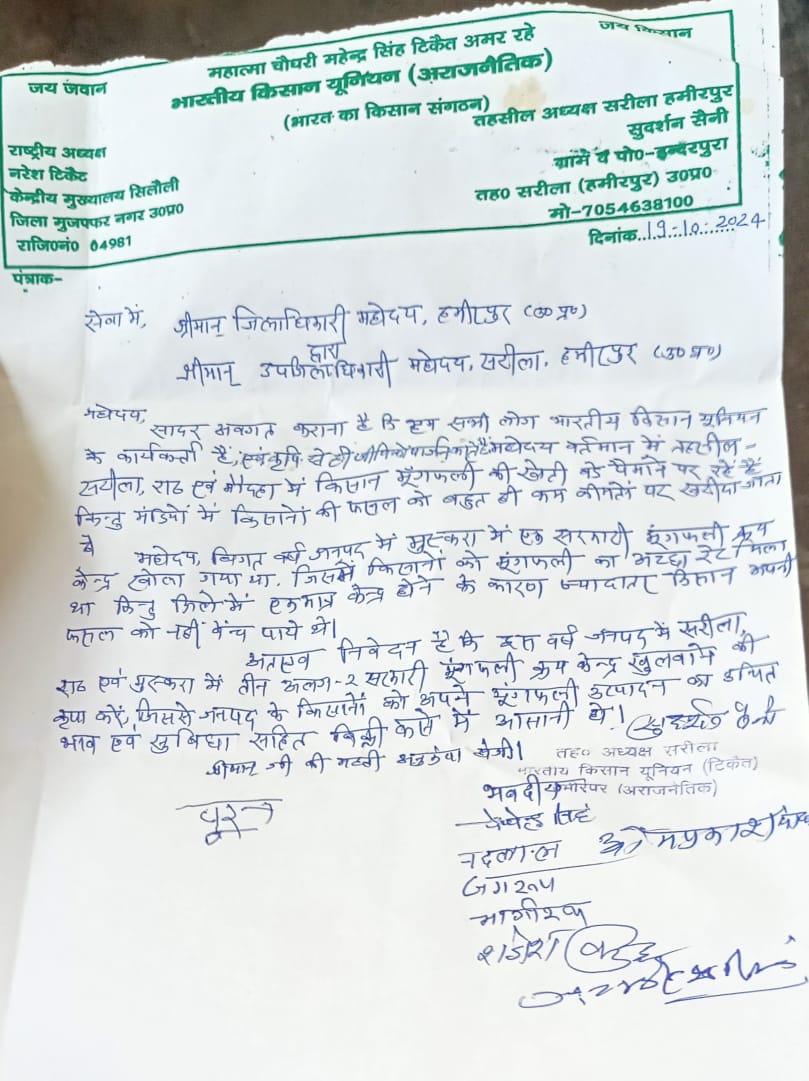 महात्मा चौधरी महेन्द्र सिंह टिकैत अमर रहे
जय जवान
जय किसान
भारतीय किसान यूनियन (अराजनैतिक)
(भारत का किसान संगठन)
राष्ट्रीय अध्यक्ष
नरेश टिकैट
केन्द्रीय मुख्यालय सिलौली
जिला मुजफ्फर नगर उ0प्र0
राजि0नं0 04981
तहसील अध्यक्ष सरीला हमीरपुर
सुदर्शन सैनी
ग्राम व पो0-इन्दरपुरा
तह0 सरीला (हमीरपुर) उ0प्र0
मो-7054638100
दिनांक..19-10-2024
पंत्राक-
सेवा में, श्रीमान् जिलाधिकारी महोदय, हमीरपुर (उ0 प्र0)
द्वारा
श्रीमान् उपजिलाधिकारी महोदय, सरीला, हमीरपुर (उ0 प्र0)
महोदय,
सादर अवगत कराना है कि हम सभी लोग भारतीय किसान यूनियन
के कार्यकर्ता हैं, एवं कृषि से ही जीविकोपार्जन करते हैं महोदय वर्तमान में तहसील-
सरीला, राठ एवं मौदहा में किसान मूंगफली की खेती बडे पैमाने पर रहे हैं
किन्तु मंडियों में किसानों की फसल को बहुत ही कम कीमतों पर खरीदा जाता
है
महोदय, विगत वर्ष जनपद में मुस्करा में एक सरकारी मूंगफली क्रय
केन्द्र खोला गया था. जिसमें किसानों को मूंगफली का अच्छा रेट मिला
था किन्तु जिले में एकमात्र केन्द्र होने के कारण ज्यादातर किसान अपनी
फसल को नहीं बेंच पाये थे।
अतएव निवेदन है कि इस वर्ष जनपद में सरीला,
राठ एवं मुस्करा में तीन अलग-२ सरकारी मूंगफली क्रय केन्द्र खुलवाने की
कृपा करें, जिससे जनपद के किसानों को अपने मूंगफली उत्पादन का उचित
भाव एवं सुबिधा सहित बिक्री करने में आसानी हो।
श्रीमान जी की महती अनुकंपा होगी।
तह0 अध्यक्ष सरीला
भारतीय किसान यूनियन (टिकैत)
भवदीय
(अराजनैतिक)
नंदलाल
ओमप्रकाश
जगरूप
भागीरथ